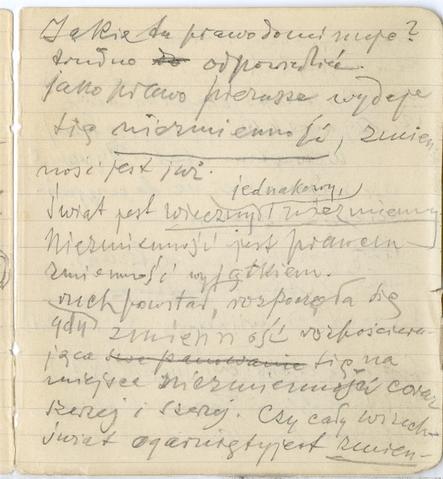 Jakie tu prawo dominuje?
trudno do odpowiedzieć.
jako prawo pierwsze wydaje
się niezmienność, zmien-
ność jest już.
jednakowy,
świat jest wieczny i niezmienny
Niezmienność jest prawem
zmienność wyjątkiem.
ruch powstał, rozpoczęła się
gdy zmienność rozpościera-
jąca swe panowanie się na
miejsce niezmienności coraz
szerzej i szerzej. Czy cały wszech-
świat ogarnięty jest zmien-